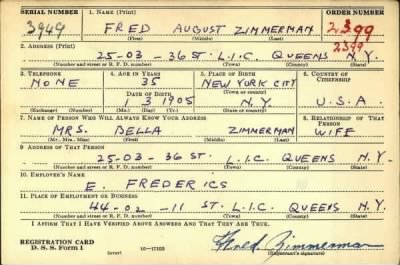 SERIAL NUMBER 1. NAME (Print) ORDER NUMBER
3949 FRED AUGUST ZIMMERMAN 2399
(First) (Middle) (Last) 2399
2. ADDRESS (Print)
25-03-36 ST. L.I.C. QUEENS N.Y.
(Number and street or R. F. D. number) (Town) (County) (State)
3. TELEPHONE 4. AGE IN YEARS 5. PLACE OF BIRTH 6. COUNTRY OF CITIZENSHIP
NONE 35 NEW YORK CITY
DATE OF BIRTH (Town or county)
1 3 1905 N.Y. U.S.A.
(Exchange) (Number) (Mo.) (Day) (Yr.) (State or country)
7. NAME OF PERSON WHO WILL ALWAYS KNOW YOUR ADDRESS 8. RELATIONSHIP OF THAT PERSON
MRS. BELLA ZIMMERMAN WIFF
(Mr., Mrs., Miss) (First) (Middle) (Last)
9. ADDRESS OF THAT PERSON
25-03-36 ST. L.I.C. QUEENS N.Y.
(Number and street or R. F. D. number) (Town) (County) (State)
10. EMPLOYER'S NAME
E. FREDERICS
11. PLACE OF EMPLOYMENT OR BUSINESS
44-02-11 ST. L.I.C. QUEENS N.Y.
(Number and street or R. F. D. number) (Town) (County) (State)
I AFFIRM THAT I HAVE VERIFIED ABOVE ANSWERS AND THAT THEY ARE TRUE.
REGISTRATION CARD
D. S. S. Form 1 16-17105 Fred Zimmerman
(Registrant's signature)